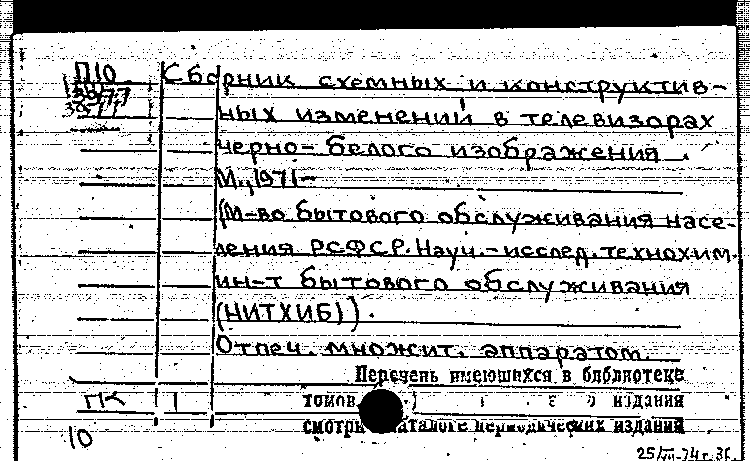 П10
Сборник схемных и конструктив-
ных изменений в телевизорах
черно-белого изображения.
М., 1971-
(М-во бытового обслуживания насе-
ления РСФСР. Науч.-исслед. технохим.
ин-т бытового обслуживания
(НИТХИБ)).
Отпеч. множит. аппаратом.
Перечень имеющихся в библиотеке
ПК 1 томов издания
смотри каталоге периодических изданий
10